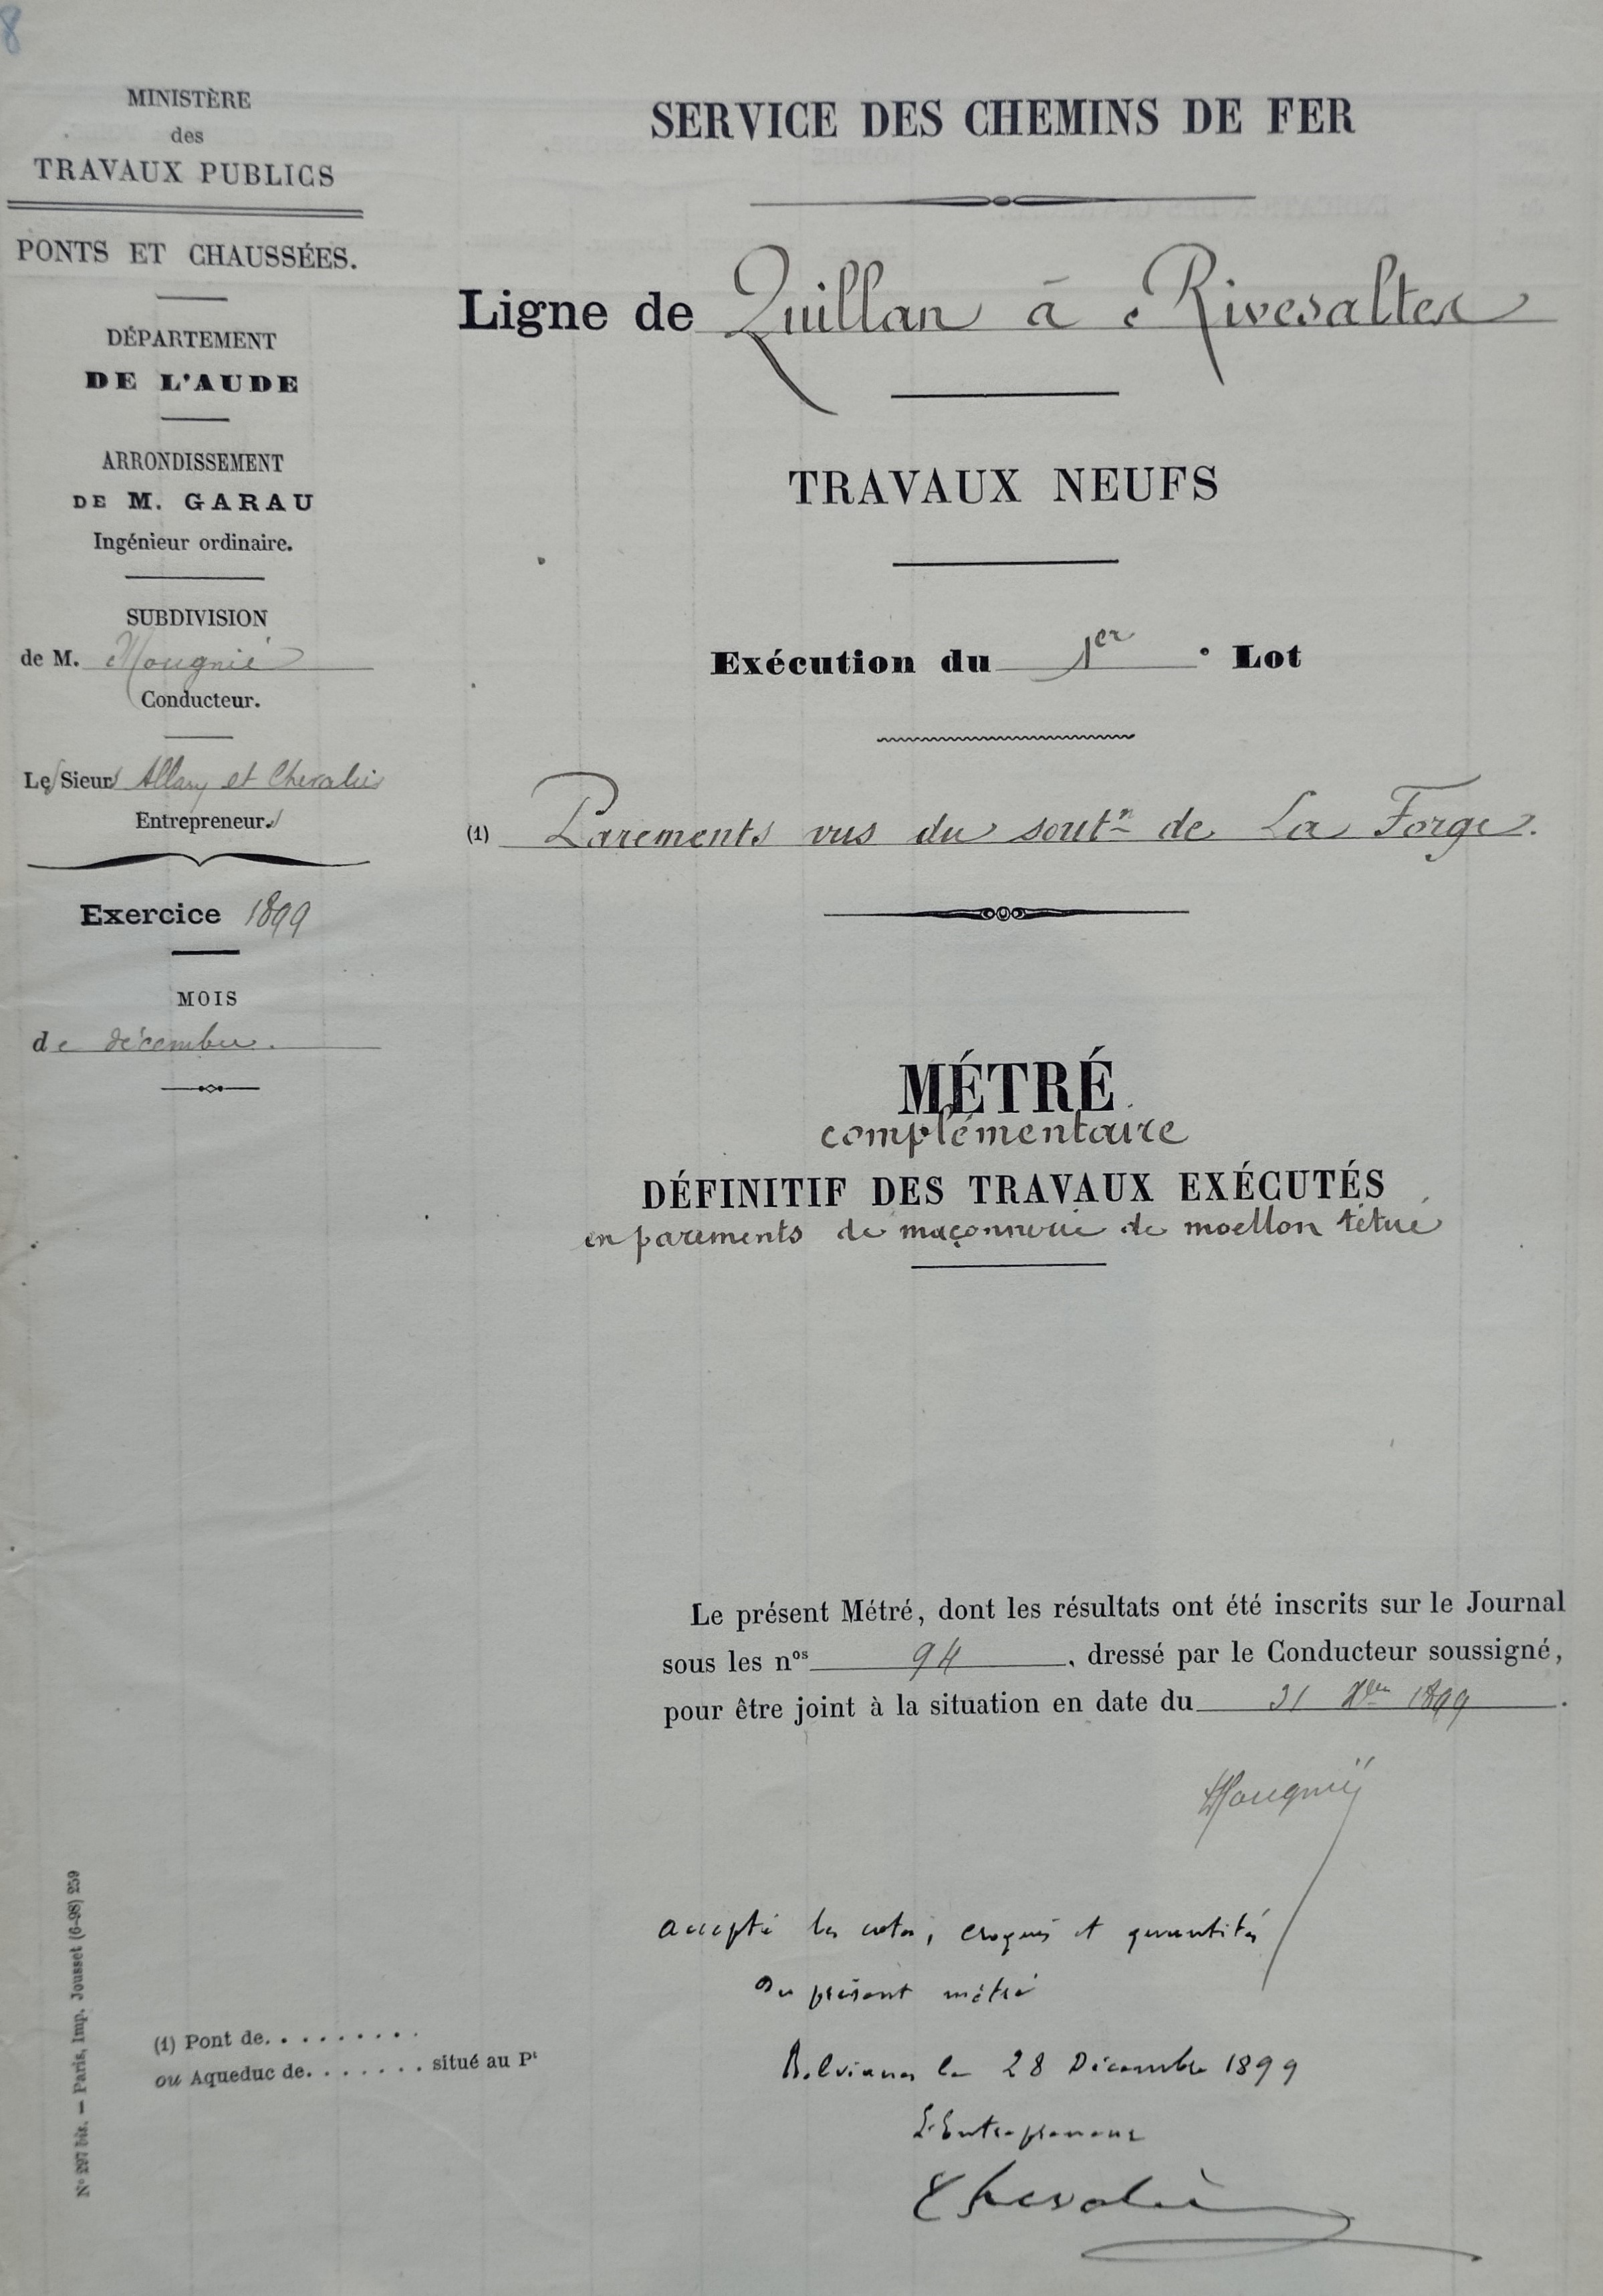 8
MINISTÈRE
des
TRAVAUX PUBLICS
PONTS ET CHAUSSÉES.
DÉPARTEMENT
DE L'AUDE
ARRONDISSEMENT
DE M. GARAU
Ingénieur ordinaire.
SUBDIVISION
de M. Mougnié
Conducteur.
Le Sieur Allary et Chevalier
Entrepreneur.
Exercice 1899
MOIS
de décembre.
SERVICE DES CHEMINS DE FER
Ligne de Quillan à Rivesaltes
TRAVAUX NEUFS
Exécution du 1er e Lot
(1) Parements vus du soutn de La Forge.
MÉTRÉ
complémentaire
DÉFINITIF DES TRAVAUX EXÉCUTÉS
en parements de maçonnerie de moellon têtué
Le présent Métré, dont les résultats ont été inscrits sur le Journal
sous les nos 94, dressé par le Conducteur soussigné,
pour être joint à la situation en date du 31 Xbre 1899.
Mougnié
accepté les cotes, croquis et quantités
du présent métré
Belvianes le 28 Décembre 1899
L'Entrepreneur
Chevalier
(1) Pont de. . . . . . . . .
ou Aqueduc de. . . . . . . situé au Pt
N° 297 bis. — Paris, Imp. Jousset (6-98) 259